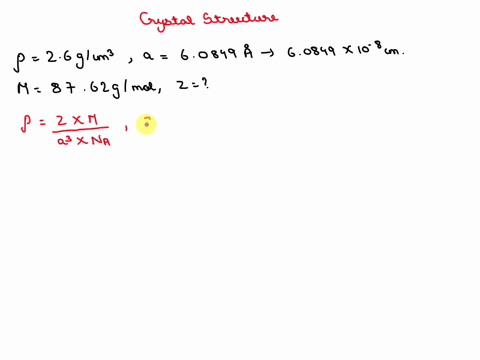 Crystal Structure
ρ = 2.6 g/cm³ , a = 6.0849 Å → 6.0849 × 10⁻⁸ cm.
M = 87.62 g/mol, Z = ?
ρ = Z × M / a³ × NA ,